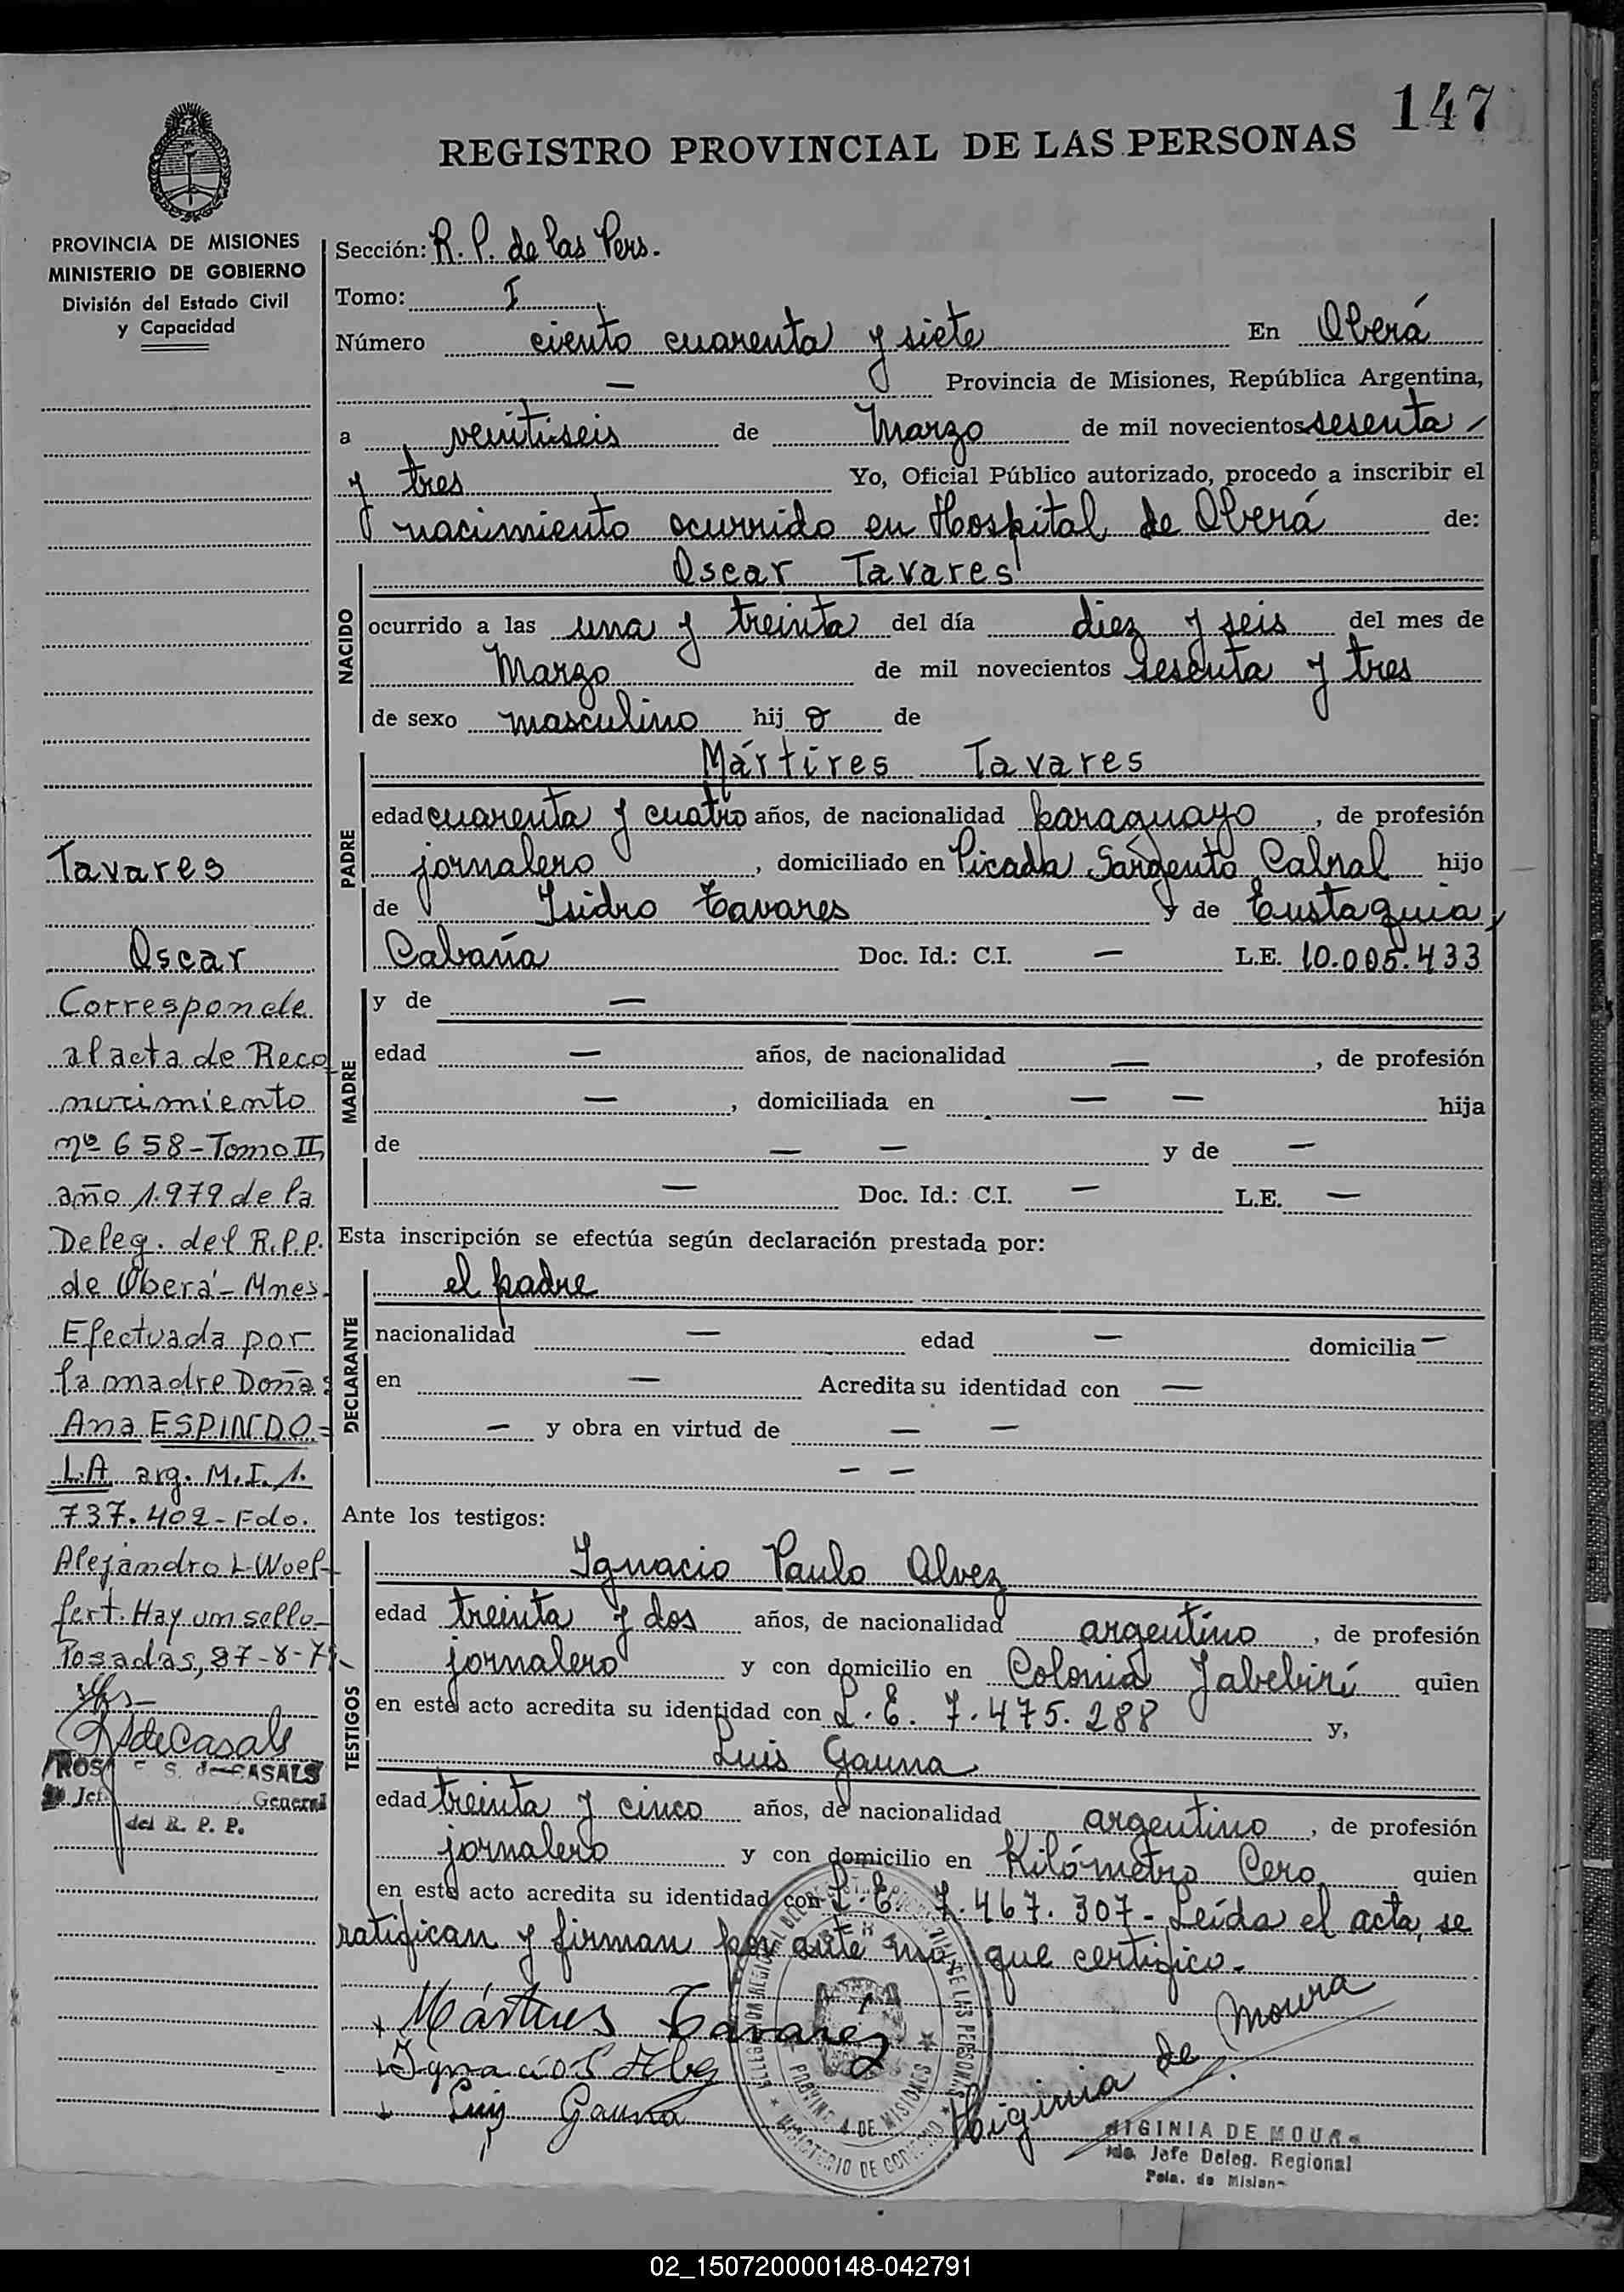 147
REGISTRO PROVINCIAL DE LAS PERSONAS
PROVINCIA DE MISIONES
MINISTERIO DE GOBIERNO
División del Estado Civil
y Capacidad
Sección: R. P. de las Pers.
Tomo: I
Número ciento cuarenta y siete En Oberá
— Provincia de Misiones, República Argentina,
a veintiseis de Marzo de mil novecientos sesenta
y tres Yo, Oficial Público autorizado, procedo a inscribir el
nacimiento ocurrido en Hospital de Oberá de:
NACIDO
Oscar Tavares
ocurrido a las una y treinta del día diez y seis del mes de
Marzo de mil novecientos sesenta y tres
de sexo masculino hij o de
PADRE
Mártires Tavares
edad cuarenta y cuatro años, de nacionalidad paraguayo, de profesión
jornalero, domiciliado en Picada Sargento Cabral hijo
de Isidro Tavares y de Eustaquia
Cabaña Doc. Id.: C.I. — L.E. 10.005.433
MADRE
y de —
edad — años, de nacionalidad —, de profesión
—, domiciliada en — — hija
de — — y de —
— Doc. Id.: C.I. — L.E. —
Esta inscripción se efectúa según declaración prestada por:
DECLARANTE
el padre
nacionalidad — edad — domicilia —
en — Acredita su identidad con —
— y obra en virtud de — —
— —
Ante los testigos:
TESTIGOS
Ignacio Paulo Alvez
edad treinta y dos años, de nacionalidad argentino, de profesión
jornalero y con domicilio en Colonia Yabebirí quien
en este acto acredita su identidad con L. E. 7.475.288 y,
Luis Gauna
edad treinta y cinco años, de nacionalidad argentino, de profesión
jornalero y con domicilio en Kilómetro Cero quien
en este acto acredita su identidad con L. E. 7.467.307- Leída el acta, se
ratifican y firman por ante mí, que certifico.-
Mártires Tavarez
Ignacio P Alvez
Luis Gauna
Higinia de Moura
HIGINIA DE MOURA
Jefe Deleg. Regional
Pcia. de Mision
PROVINCIA DE MISIONES
MINISTERIO DE GOBIERNO
Tavares
Oscar
Corresponde
al acta de Reco
nocimiento
nº 658-Tomo II,
año 1.979 de la
Deleg. del R.P.P.
de Oberá-Mnes.
Efectuada por
la madre Doña:
Ana ESPINDO=
LA arg. M.I. 1.
737.402-Fdo.
Alejandro L-Woel-
fert. Hay un sello-
Posadas,
de Casals
S. de CASALS
General
del R. P. P.
02_150720000148-042791